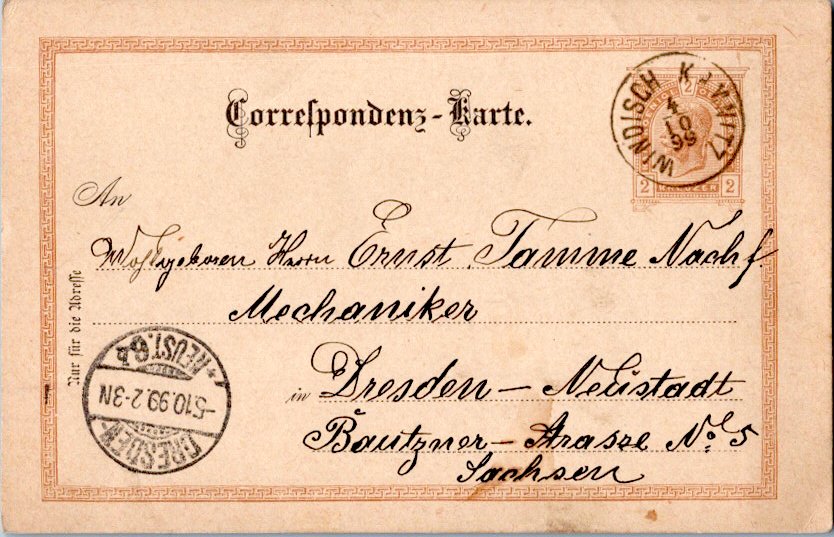 Correspondenz-Karte.
WINDISCH KAMNITZ
4
10
99
2
2 KREUZER 2
An
Wohlgeboren Herrn Ernst Tamme Nachf.
Mechaniker
in Dresden – Neustadt
Bautzner – Strasse No 5
Sachsen
Nur für die Adresse
DRESDEN-
-5.10.99.2-3N
NEUST.